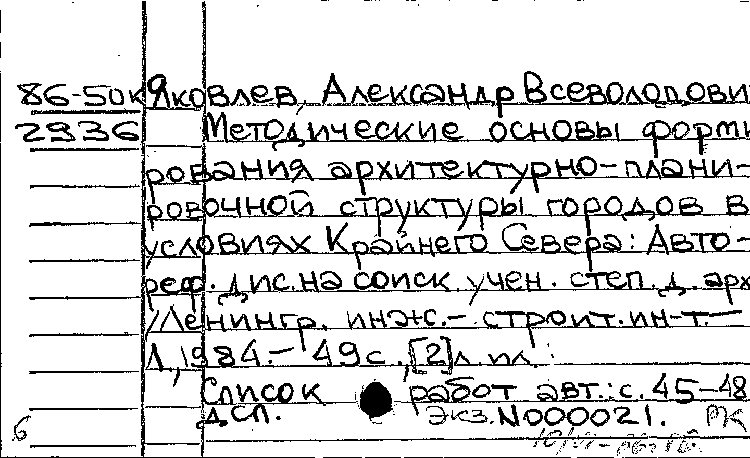 86-50к Яковлев, Александр Всеволодови
2936 Методические основы форми
рования архитектурно-плани-
ровочной структуры городов в
условиях Крайнего Севера: Авто-
реф. дис. на соиск учен. степ. д. арх
/Ленингр. инж.-строит. ин-т.-
Л., 1984.- 49с., [2]л. ил.:
Список работ авт.: с. 45-48
дсп. Экз. N000021. РК
6